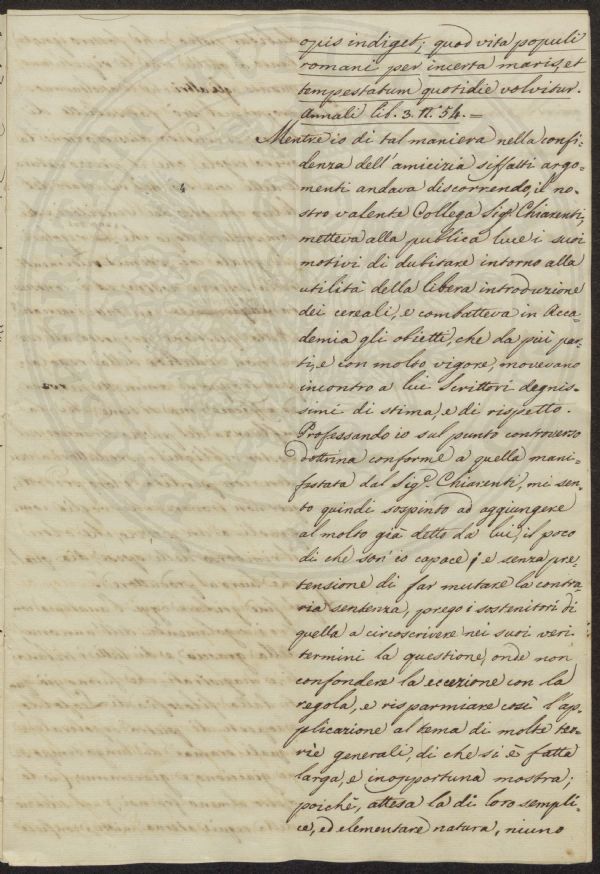 opis indiget; quod vita populi
romani per incerta maris, et
tempestatum quotidie volvitur.
Annali lib. 3. n. 54. =
Mentre io di tal maniera nella confi-
denza dell'amicizia siffatti argo-
menti andava discorrendo, il no-
stro valente Collega Sigr. Chiarenti,
metteva alla publica luce i suoi
motivi di dubitare intorno alla
utilità della libera introduzione
dei cereali, e combatteva in Acca-
demia gli obietti, che da più par-
ti, e con molto vigore, movevano
incontro a lui Scrittori degnis-
simi di stima, e di rispetto.
Professando io sul punto controverso
dottrina conforme a quella mani-
festata del Sigr. Chiarenti, mi sen-
to quindi sospinto ad aggiungere
al molto già detto da lui, il poco
di che son' io capace; e senza pre-
tensione di far mutare la contra-
ria sentenza, prego i sostenitori di
quella a circoscrivere nei suoi veri
termini la questione, onde non
confondere la eccezione con la
regola, e risparmiare così l'ap-
plicazione al tema di molte teo-
rie generali, di che si è fatta
larga, e inopportuna mostra;
poichè, attesa la di loro sempli-
ce, ed elementare natura, niuno